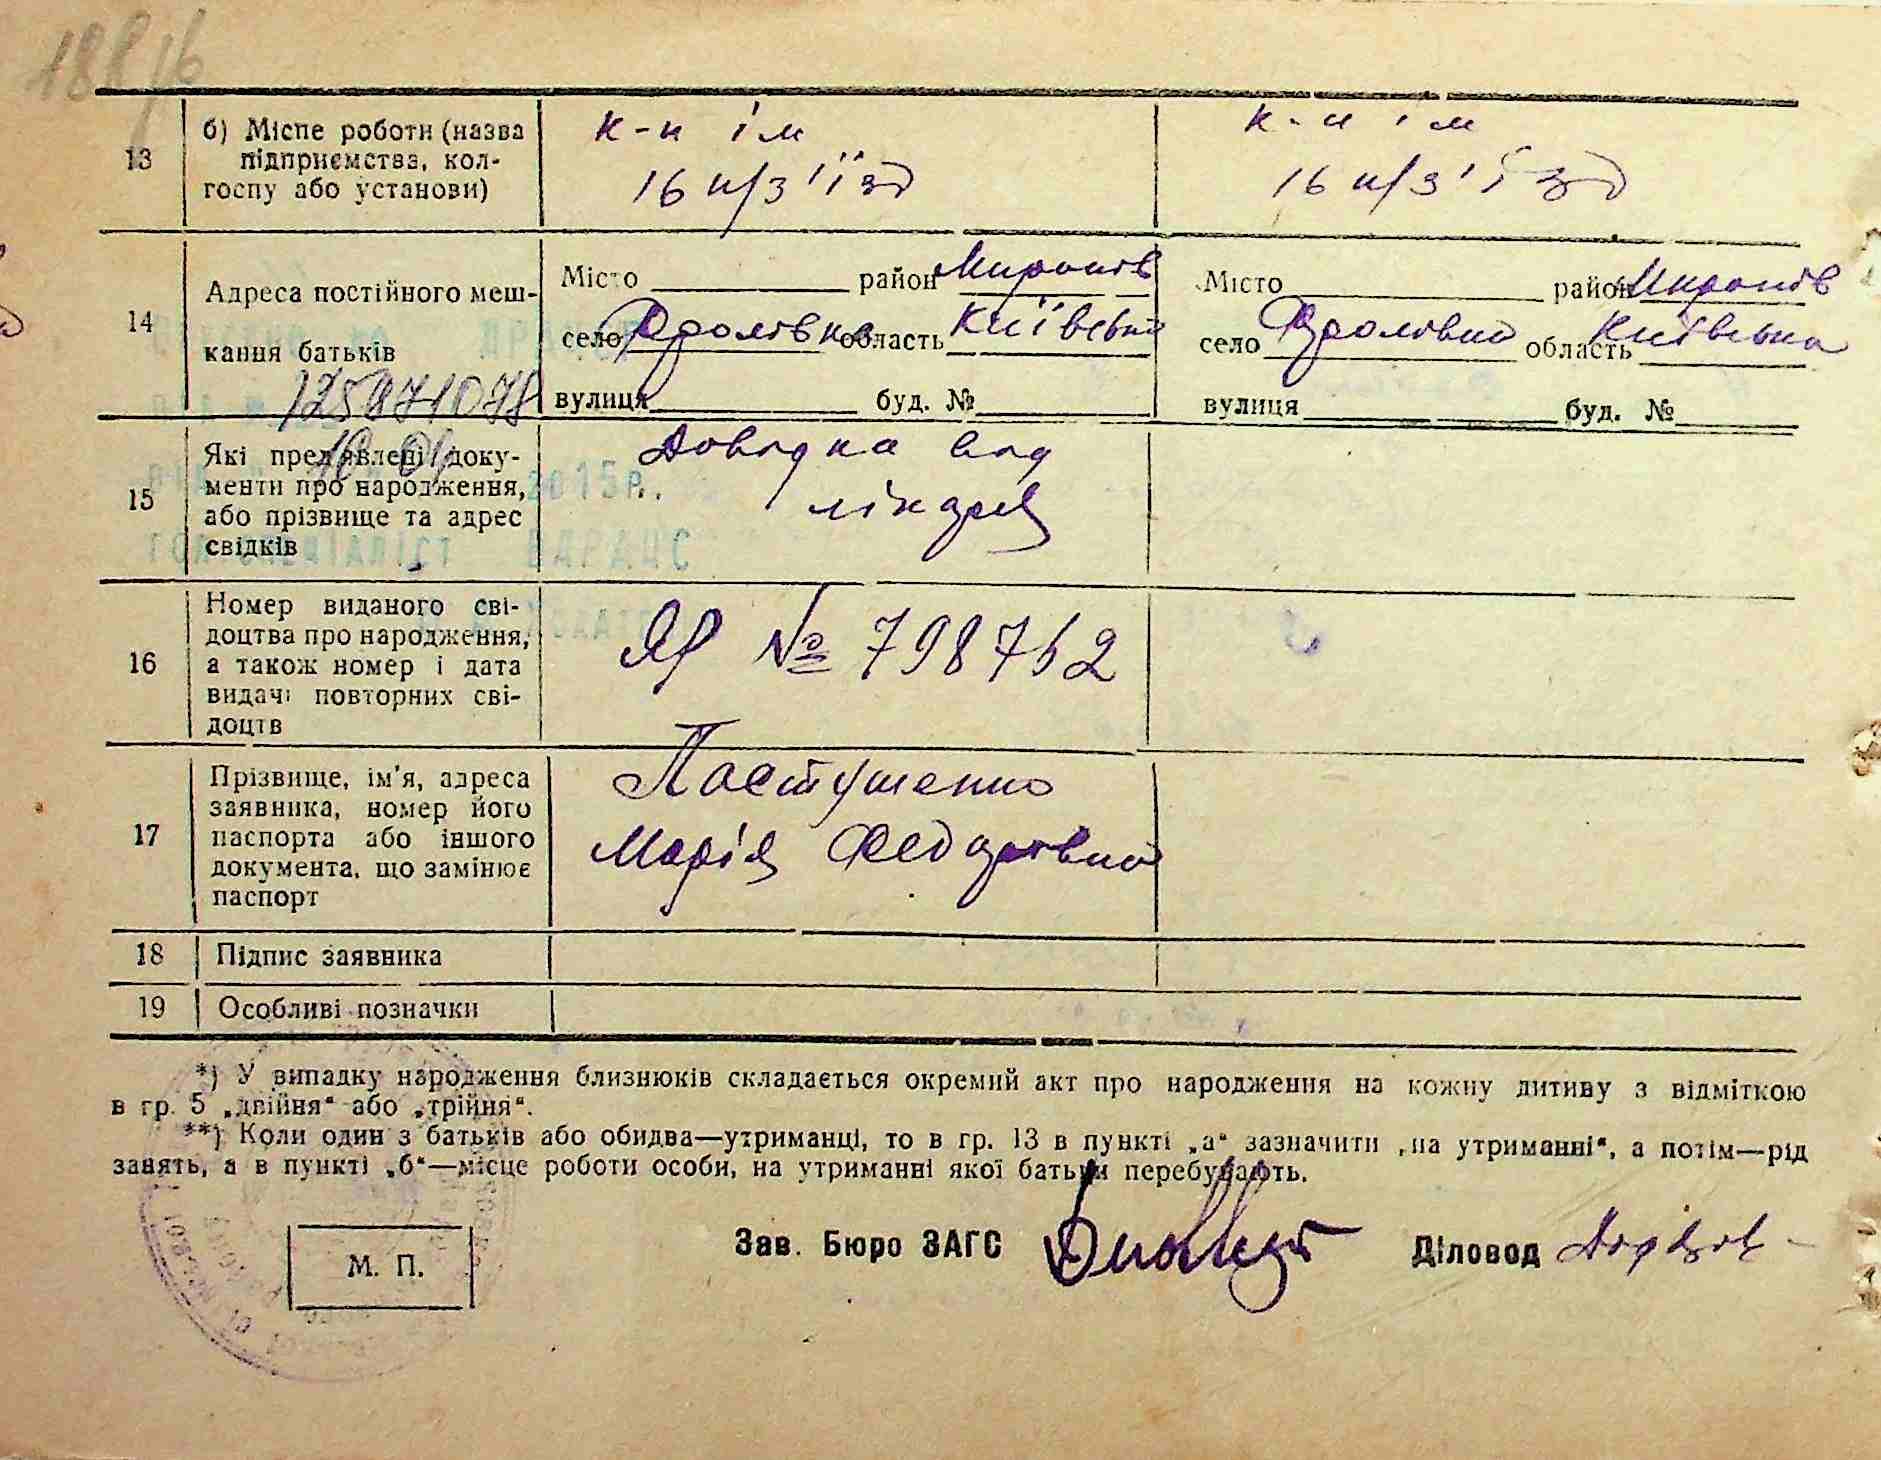 13
б) Місце роботи (назва
підприємства, кол-
госпу або установи)
к-п ім
16 п/з'їзд
к-п ім
16 п/з'їзд
14
Адреса постійного меш-
кання батьків
Місто район Миронів
село Фролівка область Київська
вулиця буд. №
Місто район Миронів
село Фролівка область Київська
вулиця буд. №
15
Які пред'явлені доку-
менти про народження,
або прізвище та адрес
свідків
Довідка від
лікаря
2015р.
16
Номер виданого сві-
доцтва про народження,
а також номер і дата
видачі повторних сві-
доцтв
ЯР № 798762
17
Прізвище, ім'я, адреса
заявника, номер його
паспорта або іншого
документа, що замінює
паспорт
Пастушенко
Марія Федорівна
18
Підпис заявника
19
Особливі позначки
*) У випадку народження близнюків складається окремий акт про народження на кожну дитину з відміткою
в гр. 5 „двійня“ або „трійня“.
**) Коли один з батьків або обидва—утриманці, то в гр. 13 в пункті „а“ зазначити „на утриманні“, а потім—рід
занять, а в пункті „б“—місце роботи особи, на утриманні якої батьки перебувають.
М. П.
Зав. Бюро ЗАГС
Діловод